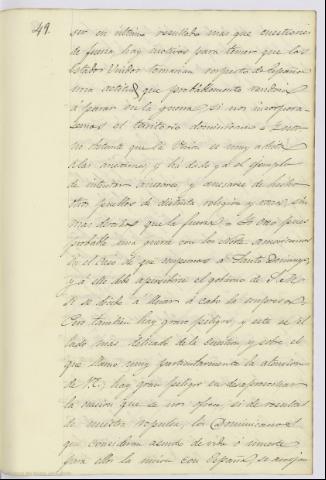 49.
ser en último resultado mas que cuestiones
de forma hay motivos para temer que los
Estados Unidos tomarian respecto de España
una actitud que probablemente vendria
á parar en la guerra, si nos incorpora-
semos el territorio dominicano = Esto
no obstante que la Union es muy adicta
á las anexiones, y ha dado ya el ejemplo
de intentar anexarse, y anexarse de hecho
otros pueblos de distinta religion y raza, sin
mas derechos que la fuerza. = Es pues
probable una guerra con los Norte americanos
en el caso de que ocupemos á Santo Domingo,
y á ella debe apercibirse el gobierno de S. M.
si se decide á llevar á cabo la empresa.
Pero tambien hay gran peligro, y este es el
lado mas delicado de la cuestion y sobre el
que llamo muy particularmente la atencion
de V.E.; hay gran peligro en desaprovechar
la ocasion que se nos ofrece, si de resultas
de nuestra repulsa, los Dominicanos, al
que consideran asunto de vida ó muerte
para ellos la union con España, se arrojan